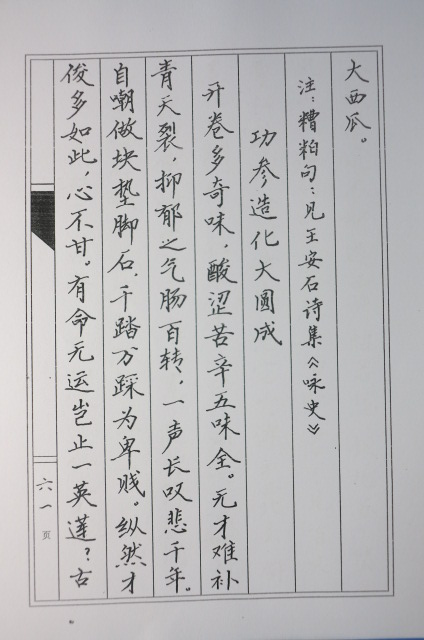 大西瓜。
注：糟粕句：见王安石诗集《咏史》
功参造化大圆成
开卷多奇味，酸涩苦辛五味全。无才难补
青天裂，抑郁之气肠百转，一声长叹悲千年。
自嘲做块垫脚石，千踏万踩为卑贱。纵然才
俊多如此，心不甘。有命无运岂止一英莲？古
六一页